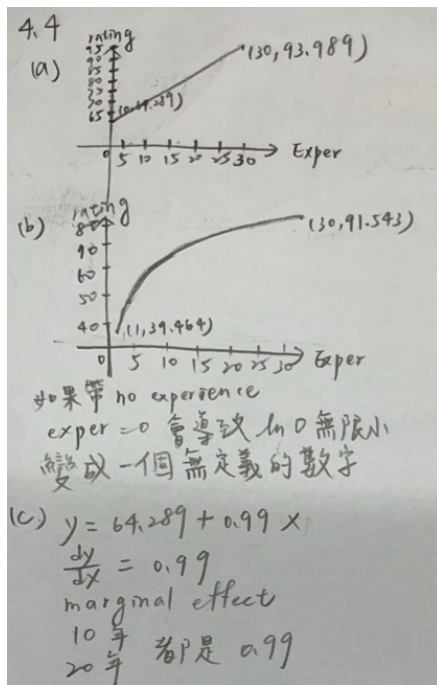 4.4
(a)
rating
95
90
85
80
75
70
65
(30, 93.989)
0 5 10 15 20 25 30 Exper
(b)
rating
(30, 91.543)
60
50
40
(1, 39.464)
0 5 10 15 20 25 30 Exper
如果帶 no experience
exper = 0 會導致 ln 0 無限小
變成一個無定義的數字
(c) y = 64.289 + 0.99 x
dy/dx = 0.99
marginal effect
10年
20年 都是 0.99